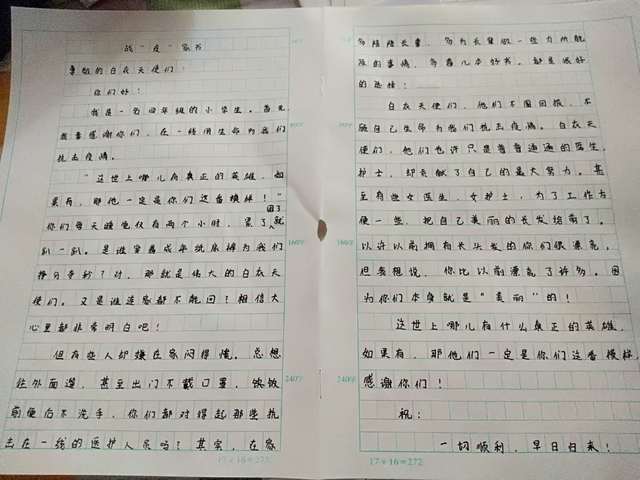 战“疫”家书
尊敬的白衣天使们：
你们好！
我是一名四年级的小学生。首先
我要感谢你们，在一线用生命为我们
抗击疫情。
“这世上哪儿有真正的英雄，如
果有，那他一定是你们这番模样！”
你们每天睡觉仅有两个小时，累了就
困了
趴一趴。是谁穿着成年纸尿裤为我们
挣分夺秒？对，那就是伟大的白衣天
使们。又是谁连家都不能回？相信大
心里都非常明白吧！
但有些人却嫌在家闷得慌。总想
往外面逛，甚至出门不戴口罩，饭
前便后不洗手，你们都对得起那些抗
击在一线的医护人员吗？其实，在家
240字
17×16=272
多陪陪长辈，多为长辈做一些力所能
及的事情，多看几本好书。都是很好
的选择！
白衣天使们，他们不图回报，不
顾自己生命为我们抗击疫情。白衣天
使们，他们也许只是普普通通的医生，
护士，却贡献了自己的最大努力。甚
至有些女医生，女护士，为了工作方
便一些，把自己美丽的长发给剪了。
以许以前拥有长头发的你们很漂亮，
但我想说，你比以前漂亮了许多。因
为你们本身就是“美丽”的！
这世上哪儿有什么真正的英雄，
如果有，那他们一定是你们这番模样
感谢你们！
祝：
一切顺利，早日归来！
160字
240字
17×16=272